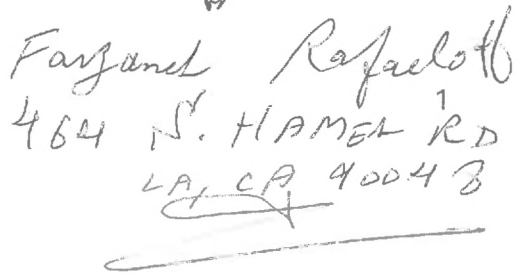 Farzaneh Rafaeloff
464 N. HAMEL RD
LA, CA 90048